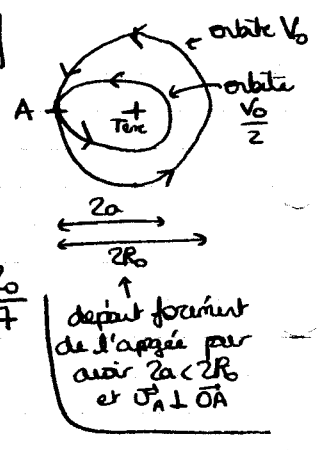 orbite V₀
orbite
V₀/2
A
Terre
2a
2R₀
7
départ forcément
de l'apogée pour
avoir 2a < 2R₀
et v⃗_A ⊥ O⃗A